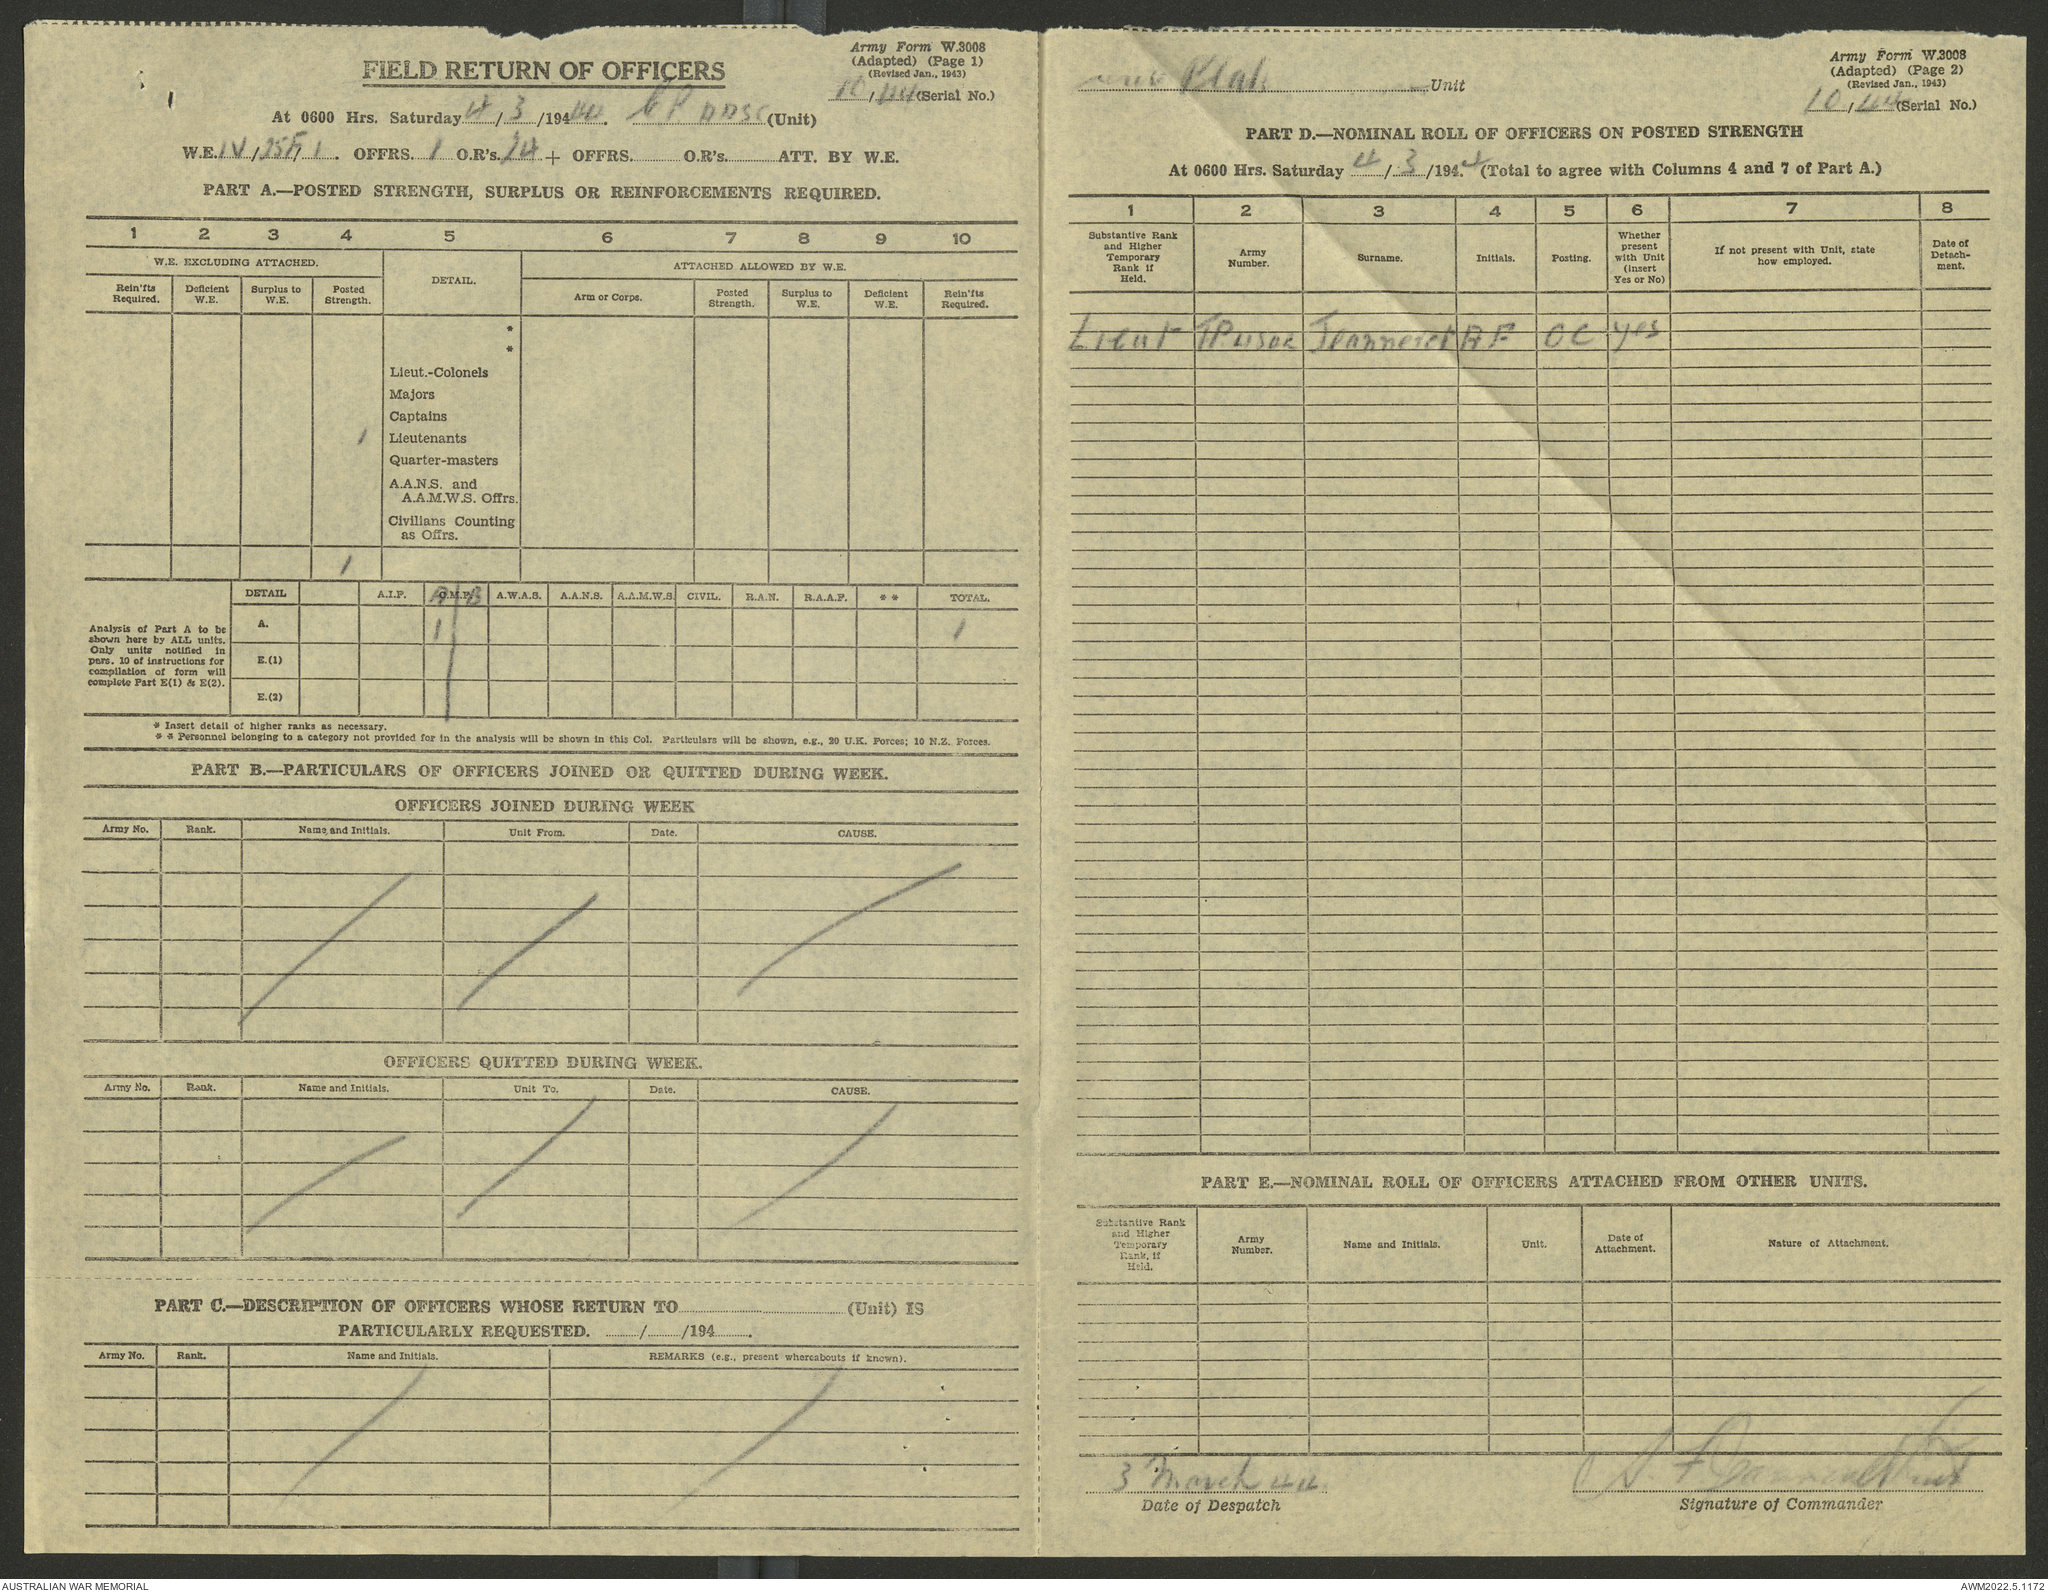 Army Form W.3008
(Adapted) (Page 1)
(Revised Jan., 1943)
10/44 (Serial No.)
FIELD RETURN OF OFFICERS
At 0600 Hrs. Saturday 4/3/1944. (Unit)
W.E. IV/25F/1. OFFRS. 1 O.R's. 24 + OFFRS. O.R's. ATT. BY W.E.
PART A.—POSTED STRENGTH, SURPLUS OR REINFORCEMENTS REQUIRED.
1 2 3 4 5 6 7 8 9 10
W.E. EXCLUDING ATTACHED. DETAIL. ATTACHED ALLOWED BY W.E.
Rein'fts Required. Deficient W.E. Surplus to W.E. Posted Strength. Arm or Corps. Posted Strength. Surplus to W.E. Deficient W.E. Rein'fts Required.
*
*
Lieut.-Colonels
Majors
Captains
1 Lieutenants
Quarter-masters
A.A.N.S. and
A.A.M.W.S. Offrs.
Civilians Counting
as Offrs.
1
DETAIL A.I.F. C.M.F. A B A.W.A.S. A.A.N.S. A.A.M.W.S. CIVIL. R.A.N. R.A.A.F. ** TOTAL.
A. 1 1
E.(1)
E.(2)
Analysis of Part A to be
shown here by ALL units.
Only units notified in
para. 10 of instructions for
compilation of form will
complete Part E(1) & E(2).
* Insert detail of higher ranks as necessary.
** Personnel belonging to a category not provided for in the analysis will be shown in this Col. Particulars will be shown, e.g., 20 U.K. Forces; 10 N.Z. Forces.
PART B.—PARTICULARS OF OFFICERS JOINED OR QUITTED DURING WEEK.
OFFICERS JOINED DURING WEEK
Army No. Rank. Name and Initials. Unit From. Date. CAUSE.
OFFICERS QUITTED DURING WEEK.
Army No. Rank. Name and Initials. Unit To. Date. CAUSE.
PART C.—DESCRIPTION OF OFFICERS WHOSE RETURN TO (Unit) IS
PARTICULARLY REQUESTED. / /194 .
Army No. Rank. Name and Initials. REMARKS (e.g., present whereabouts if known).
Army Form W.3008
(Adapted) (Page 2)
(Revised Jan., 1943)
10/44 (Serial No.)
Unit
PART D.—NOMINAL ROLL OF OFFICERS ON POSTED STRENGTH
At 0600 Hrs. Saturday 4/3/1944. (Total to agree with Columns 4 and 7 of Part A.)
1 2 3 4 5 6 7 8
Substantive Rank and Higher Temporary Rank if Held. Army Number. Surname. Initials. Posting. Whether present with Unit (Insert Yes or No) If not present with Unit, state how employed. Date of Detachment.
Lieut Jeanneret AF OC yes
PART E.—NOMINAL ROLL OF OFFICERS ATTACHED FROM OTHER UNITS.
Substantive Rank and Higher Temporary Rank, if Held. Army Number. Name and Initials. Unit. Date of Attachment. Nature of Attachment.
3 March 44
Date of Despatch
Signature of Commander
AUSTRALIAN WAR MEMORIAL
AWM2022.5.1172